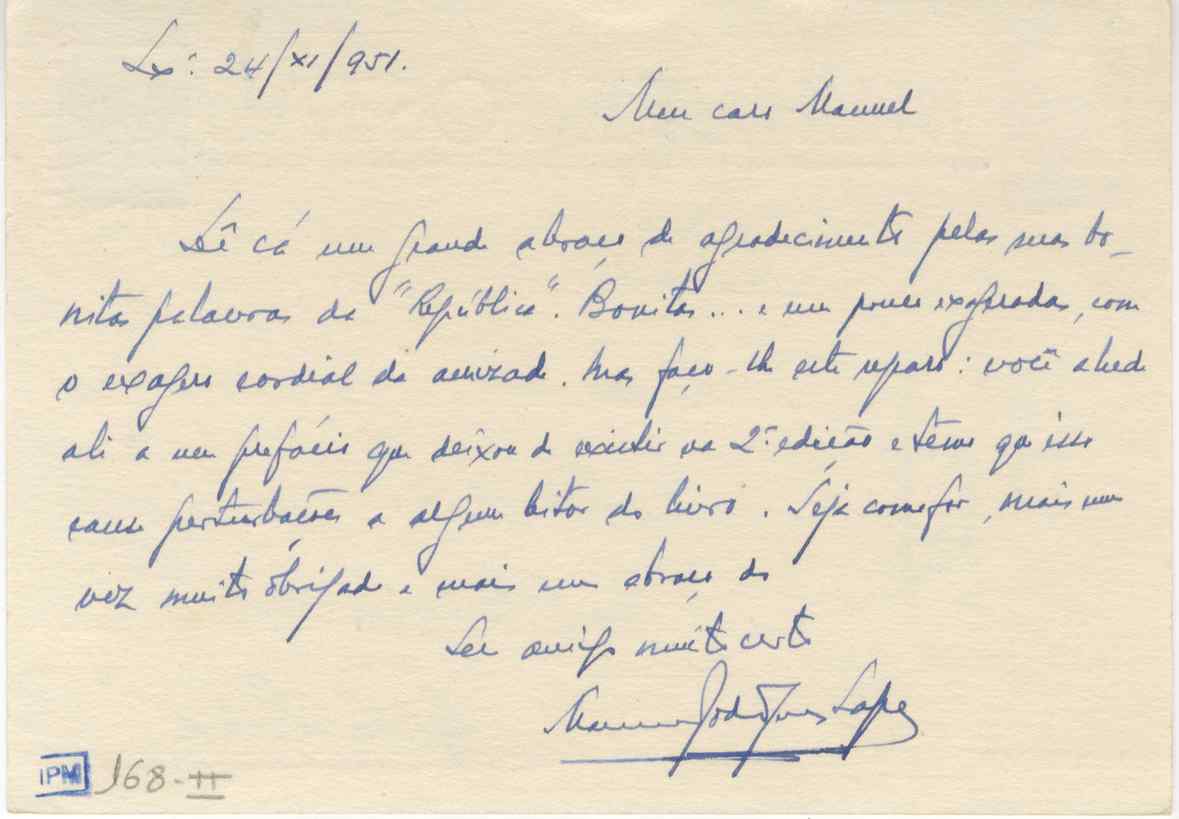 Lxª: 24/XI/951.
Meu caro Manuel
Dê cá um grande abraço de agradecimento pelas suas bo-
nitas palavras da "República". Bonitas... e um pouco exageradas, com
o exagero cordial da amizade. Mas faço-lhe este reparo: você alude
ali a um prefácio que deixou de existir na 2ª edição e temo que isso
cause perturbações a algum leitor do livro. Seja como for, mais uma
vez muito obrigado e mais um abraço do
Seu amigo muito certo
Manuel Rodrigues Lapa
IPM 168-II